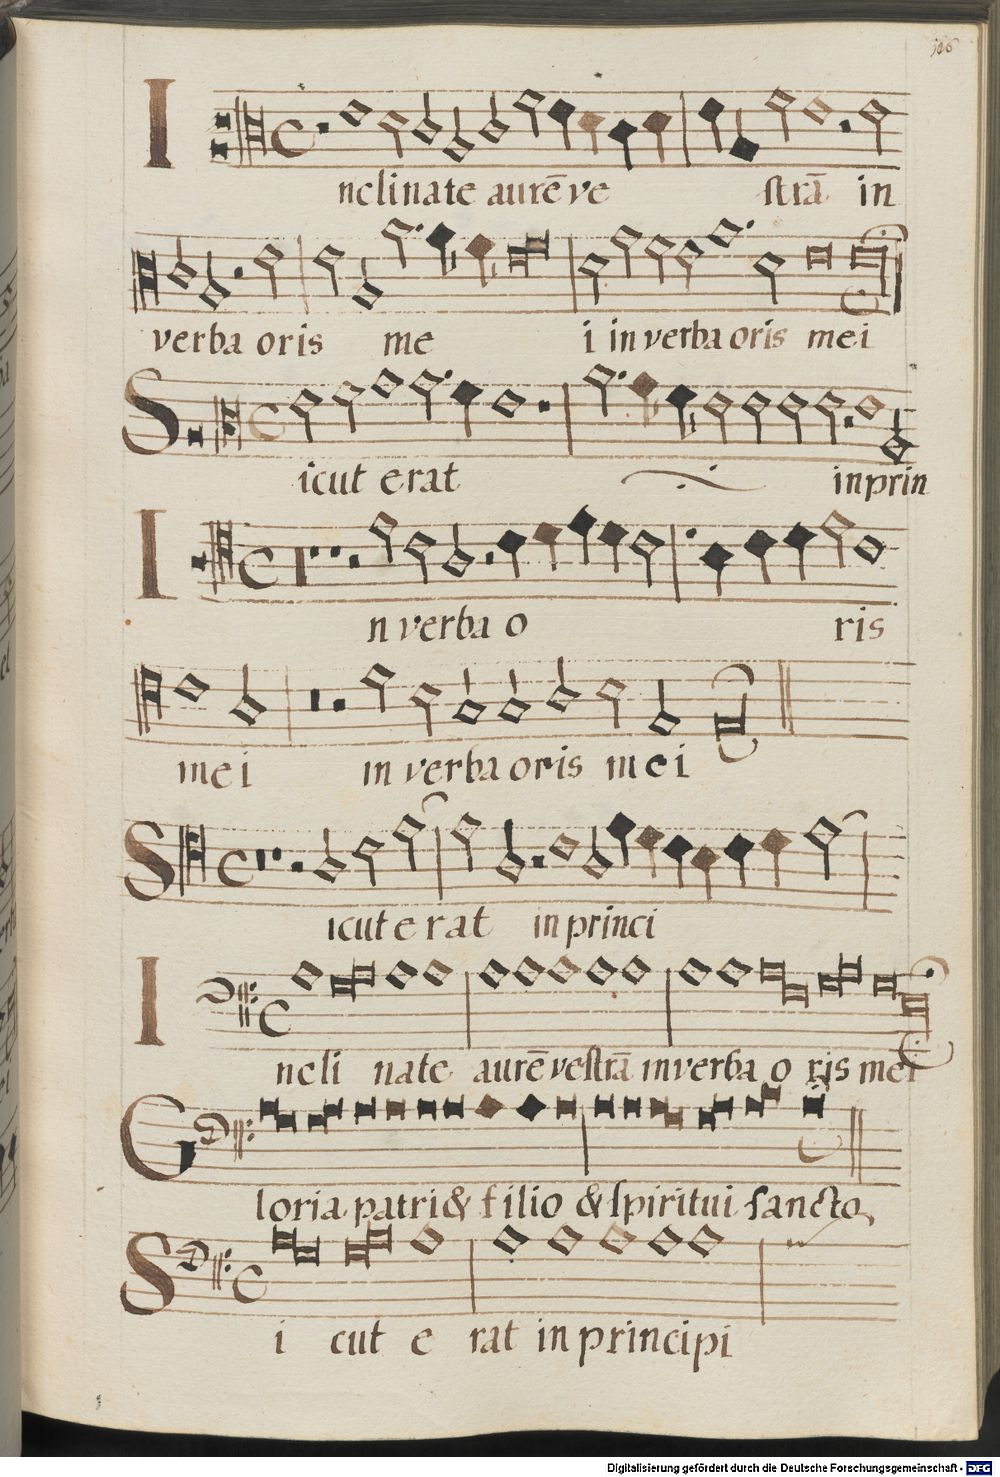 106
I
nclinate aurē ve strā in
verba oris me i in verba oris mei
S
icut erat in prin
I
n verba o ris
mei in verba oris mei
S
icut erat in princi
I
ncli nate aurē vestrā in verba o ris mei
G
loria patri & filio & spiritui sancto
S
i cut e rat in principi
Digitalisierung gefördert durch die Deutsche Forschungsgemeinschaft - DFG